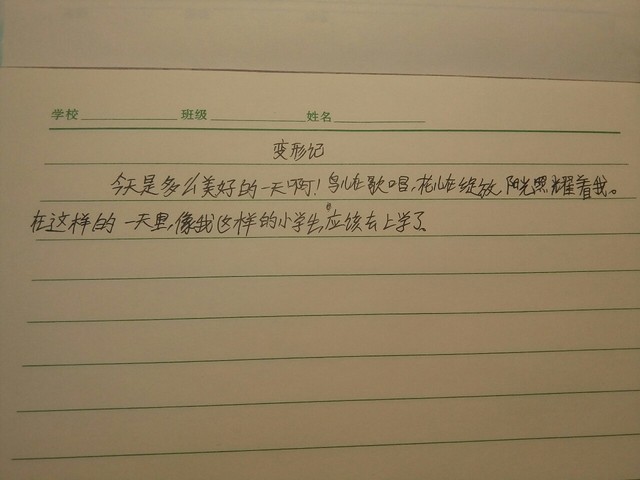 学校 班级 姓名
变形记
今天是多么美好的一天啊！鸟儿在歌唱，花儿在绽放，阳光照耀着我。
在这样的一天里，像我这样的小学生，应该去上学了